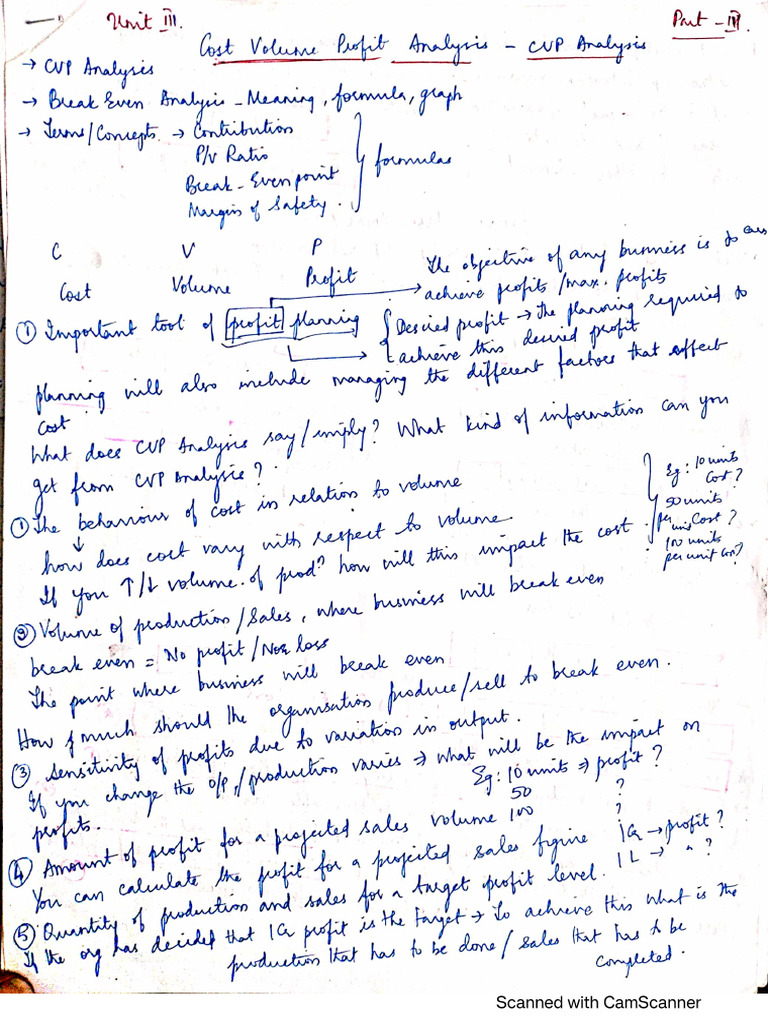 Unit III.
Part - III.
Cost Volume Profit Analysis - CVP Analysis
→ CVP Analysis
→ Break Even Analysis - Meaning, formula, graph
→ Terms/Concepts → Contribution
P/V Ratio
Break-Even point
Margin of Safety.
formulas
C V P
Cost Volume Profit
The objective of any business is to
achieve profits/max. profits
① Important tool of profit planning
Desired profit → The planning required to
achieve this desired profit
planning will also include managing the different factors that affect
cost
What does CVP Analysis say/imply? What kind of information can you
get from CVP Analysis?
① The behaviour of cost in relation to volume
how does cost vary with respect to volume
If you ↑/↓ volume of prodn how will this impact the cost.
Eg: 10 units
Cost?
50 units
per unit Cost?
100 units
per unit cost?
② Volume of production/Sales, where business will break even
break even = No profit/Non loss
The point where business will break even
How much should the organisation produce/sell to break even.
③ Sensitivity of profits due to variation in output.
If you change the O/P/production varies → what will be the impact on
profits.
Eg: 10 units → profit?
50 ?
100 ?
④ Amount of profit for a projected sales volume
You can calculate the profit for a projected sales figure
1 Cr → profit?
1 L → " ?
⑤ Quantity of production and sales for a target profit level.
If the org has decided that 1 Cr profit is the target → To achieve this what is the
production that has to be done/sales that has to be
completed.
Scanned with CamScanner